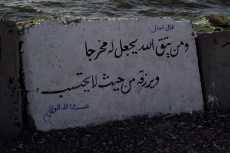 قال تعالى
ومن يتق الله يجعل له مخرجا
ويرزقه من حيث لا يحتسب
صدق الله العظيم